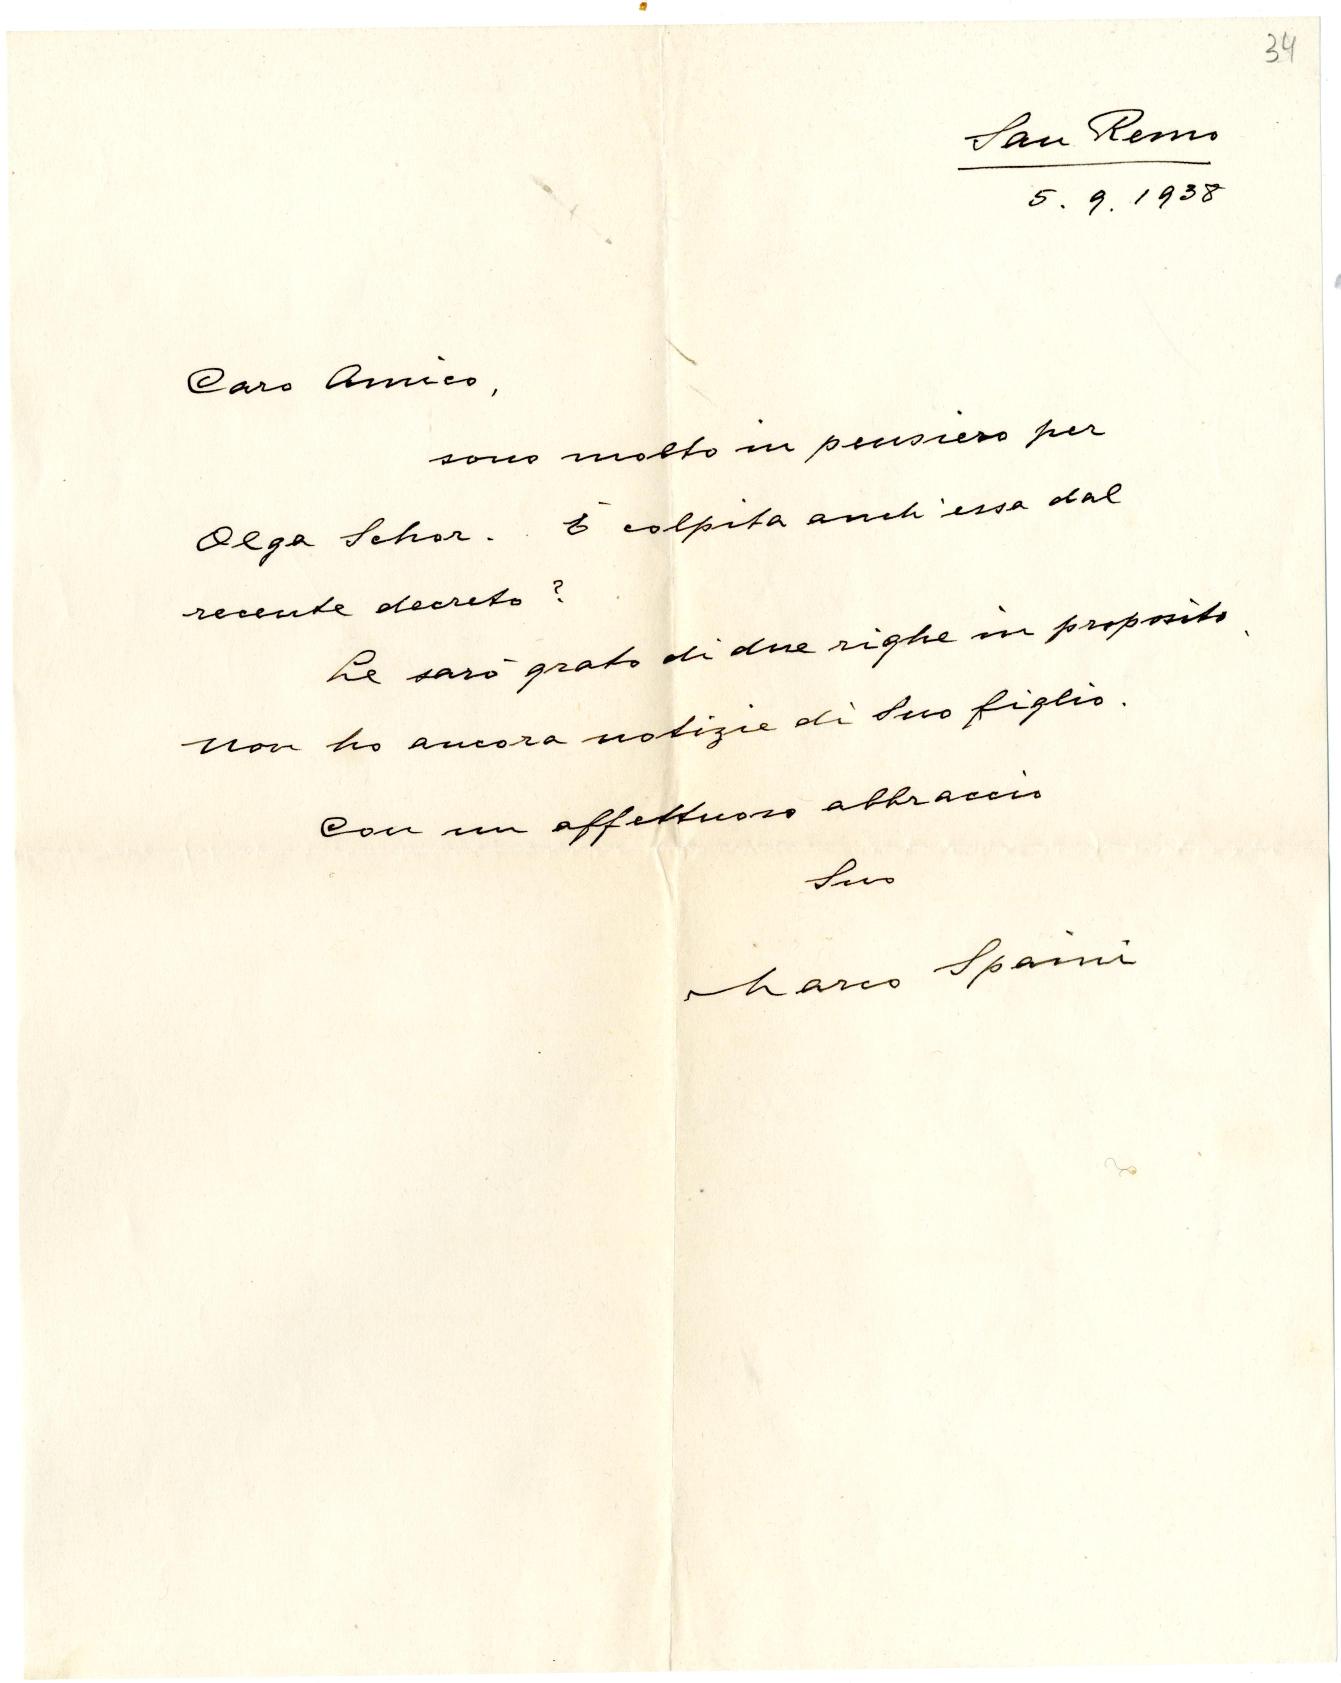 34
San Remo
5. 9. 1938
Caro Amico,
sono molto in pensiero per
Olga Schor. È colpita anch'essa dal
recente decreto?
Le sarò grato di due righe in proposito.
Non ho ancora notizie di Suo figlio.
Con un affettuoso abbraccio
Suo
Marco Spaini